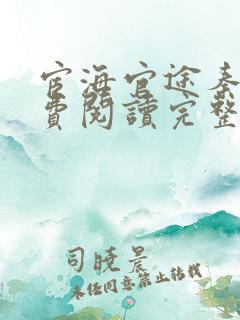 宦海官途秦
費閱讀完整
司曉晨
未经同意禁止转载